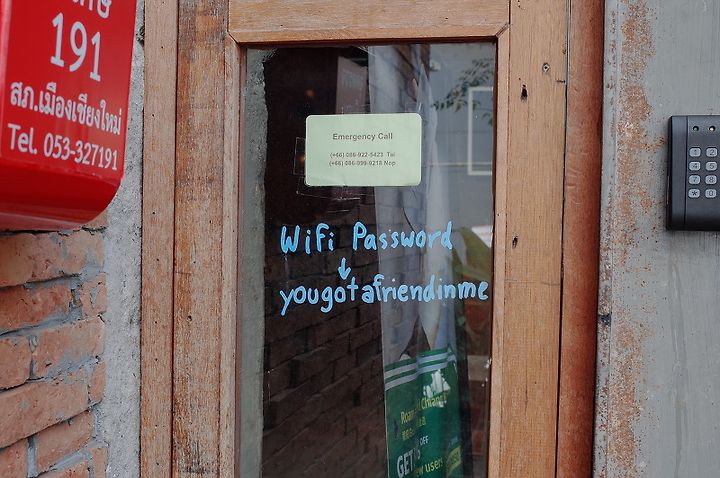 191
สภ.เมืองเชียงใหม่
Tel. 053-327191
Emergency Call
(+66) 086-922-5423 Tai
(+66) 086-999-9218 Nop
WiFi Password
↓
yougotafriendinme
GET
OFF
users
1 2 3
4 5 6
7 8 9
0